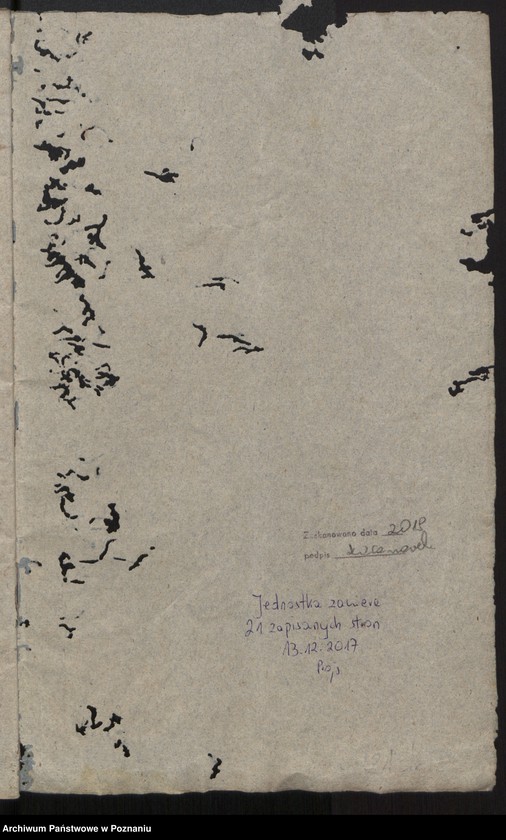 Zeskanowano data 2018
podpis
Jednostka zawiera
21 zapisanych stron
13.12.2017
Archiwum Państwowe w Poznaniu